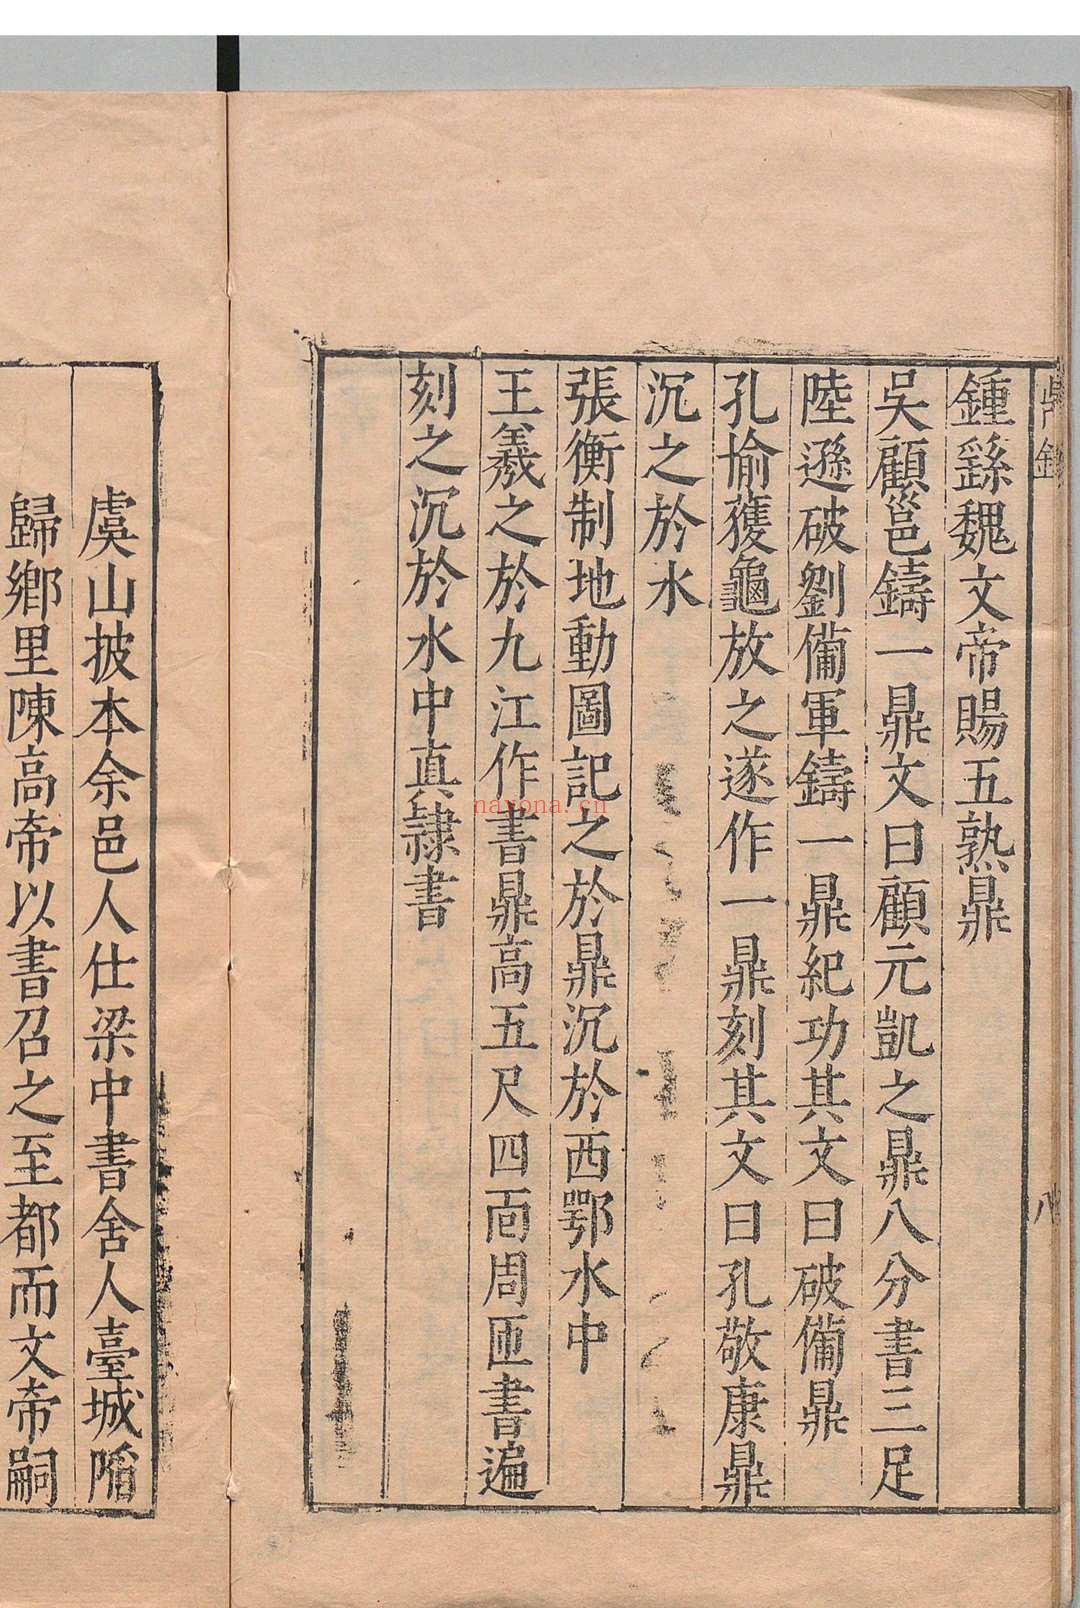 鼎錄
八
鍾繇魏文帝賜五熟鼎
吳顧邕鑄一鼎文曰顧元凱之鼎八分書三足
陸遜破劉備軍鑄一鼎紀功其文曰破備鼎
孔愉獲龜放之遂作一鼎刻其文曰孔敬康鼎
沉之於水
張衡制地動圖記之於鼎沉於西鄂水中
王羲之於九江作書鼎高五尺四面周匝書遍
刻之沉於水中真隸書
虞山披本余邑人仕梁中書舍人臺城陷
歸鄉里陳高帝以書召之至都而文帝嗣
nayona.cn